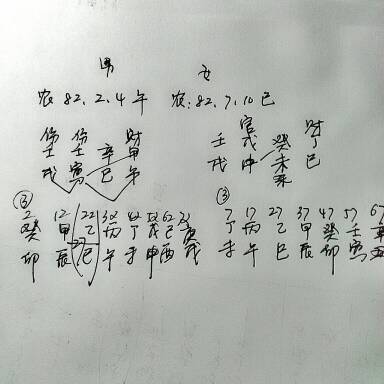 男 女
农82.2.4午 农:82.7.10巳
伤 伤 财 官 财
壬 壬 辛 甲 壬 戊 癸 丁
戌 寅 巳 午 戌 申 未 巳
③ ③
2 12 22 32 42 52 62 7 17 27 37 47 57 67
癸 甲 乙 丙 丁 戊 己 庚 丁 丙 乙 甲 癸 壬 辛
卯 辰 巳 午 未 申 酉 戌 未 午 巳 辰 卯 寅 丑